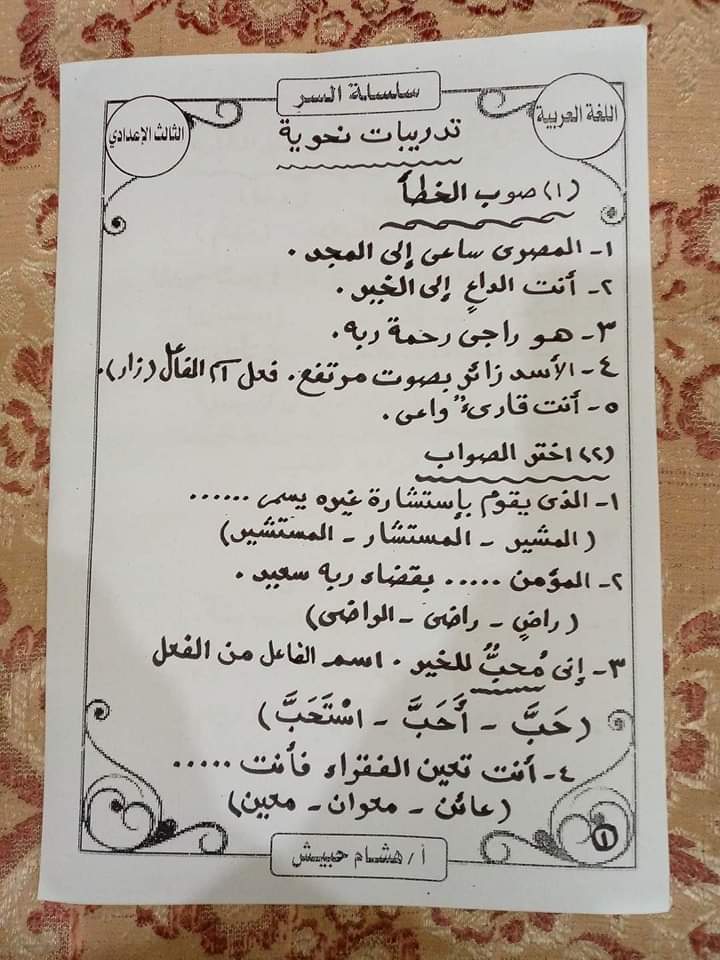 سلسلة السر
اللغة العربية
الثالث الإعدادي
تدريبات نحوية
(١) صوب الخطأ
١- المصرى ساعى إلى المجد.
٢- أنت الداعٍ إلى الخير.
٣- هو راجى رحمة ربه.
٤- الأسد زائر بصوت مرتفع. فعل اسم الفاعل (زار).
٥- أنت قارىءٌ واعى.
(٢) اختر الصواب
١- الذى يقوم بإستشارة غيره يسمى ......
(المشير - المستشار - المستشير)
٢- المؤمن ..... بقضاء ربه سعيد.
(راضٍ - راضى - الراضى)
٣- إنى مُحبٌّ للخير. اسم الفاعل من الفعل
(حَبَّ - أَحَبَّ - اسْتَحَبَّ)
٤- أنت تعين الفقراء فأنت .....
(عائن - معوان - معين)
١
أ/هشام حبيش